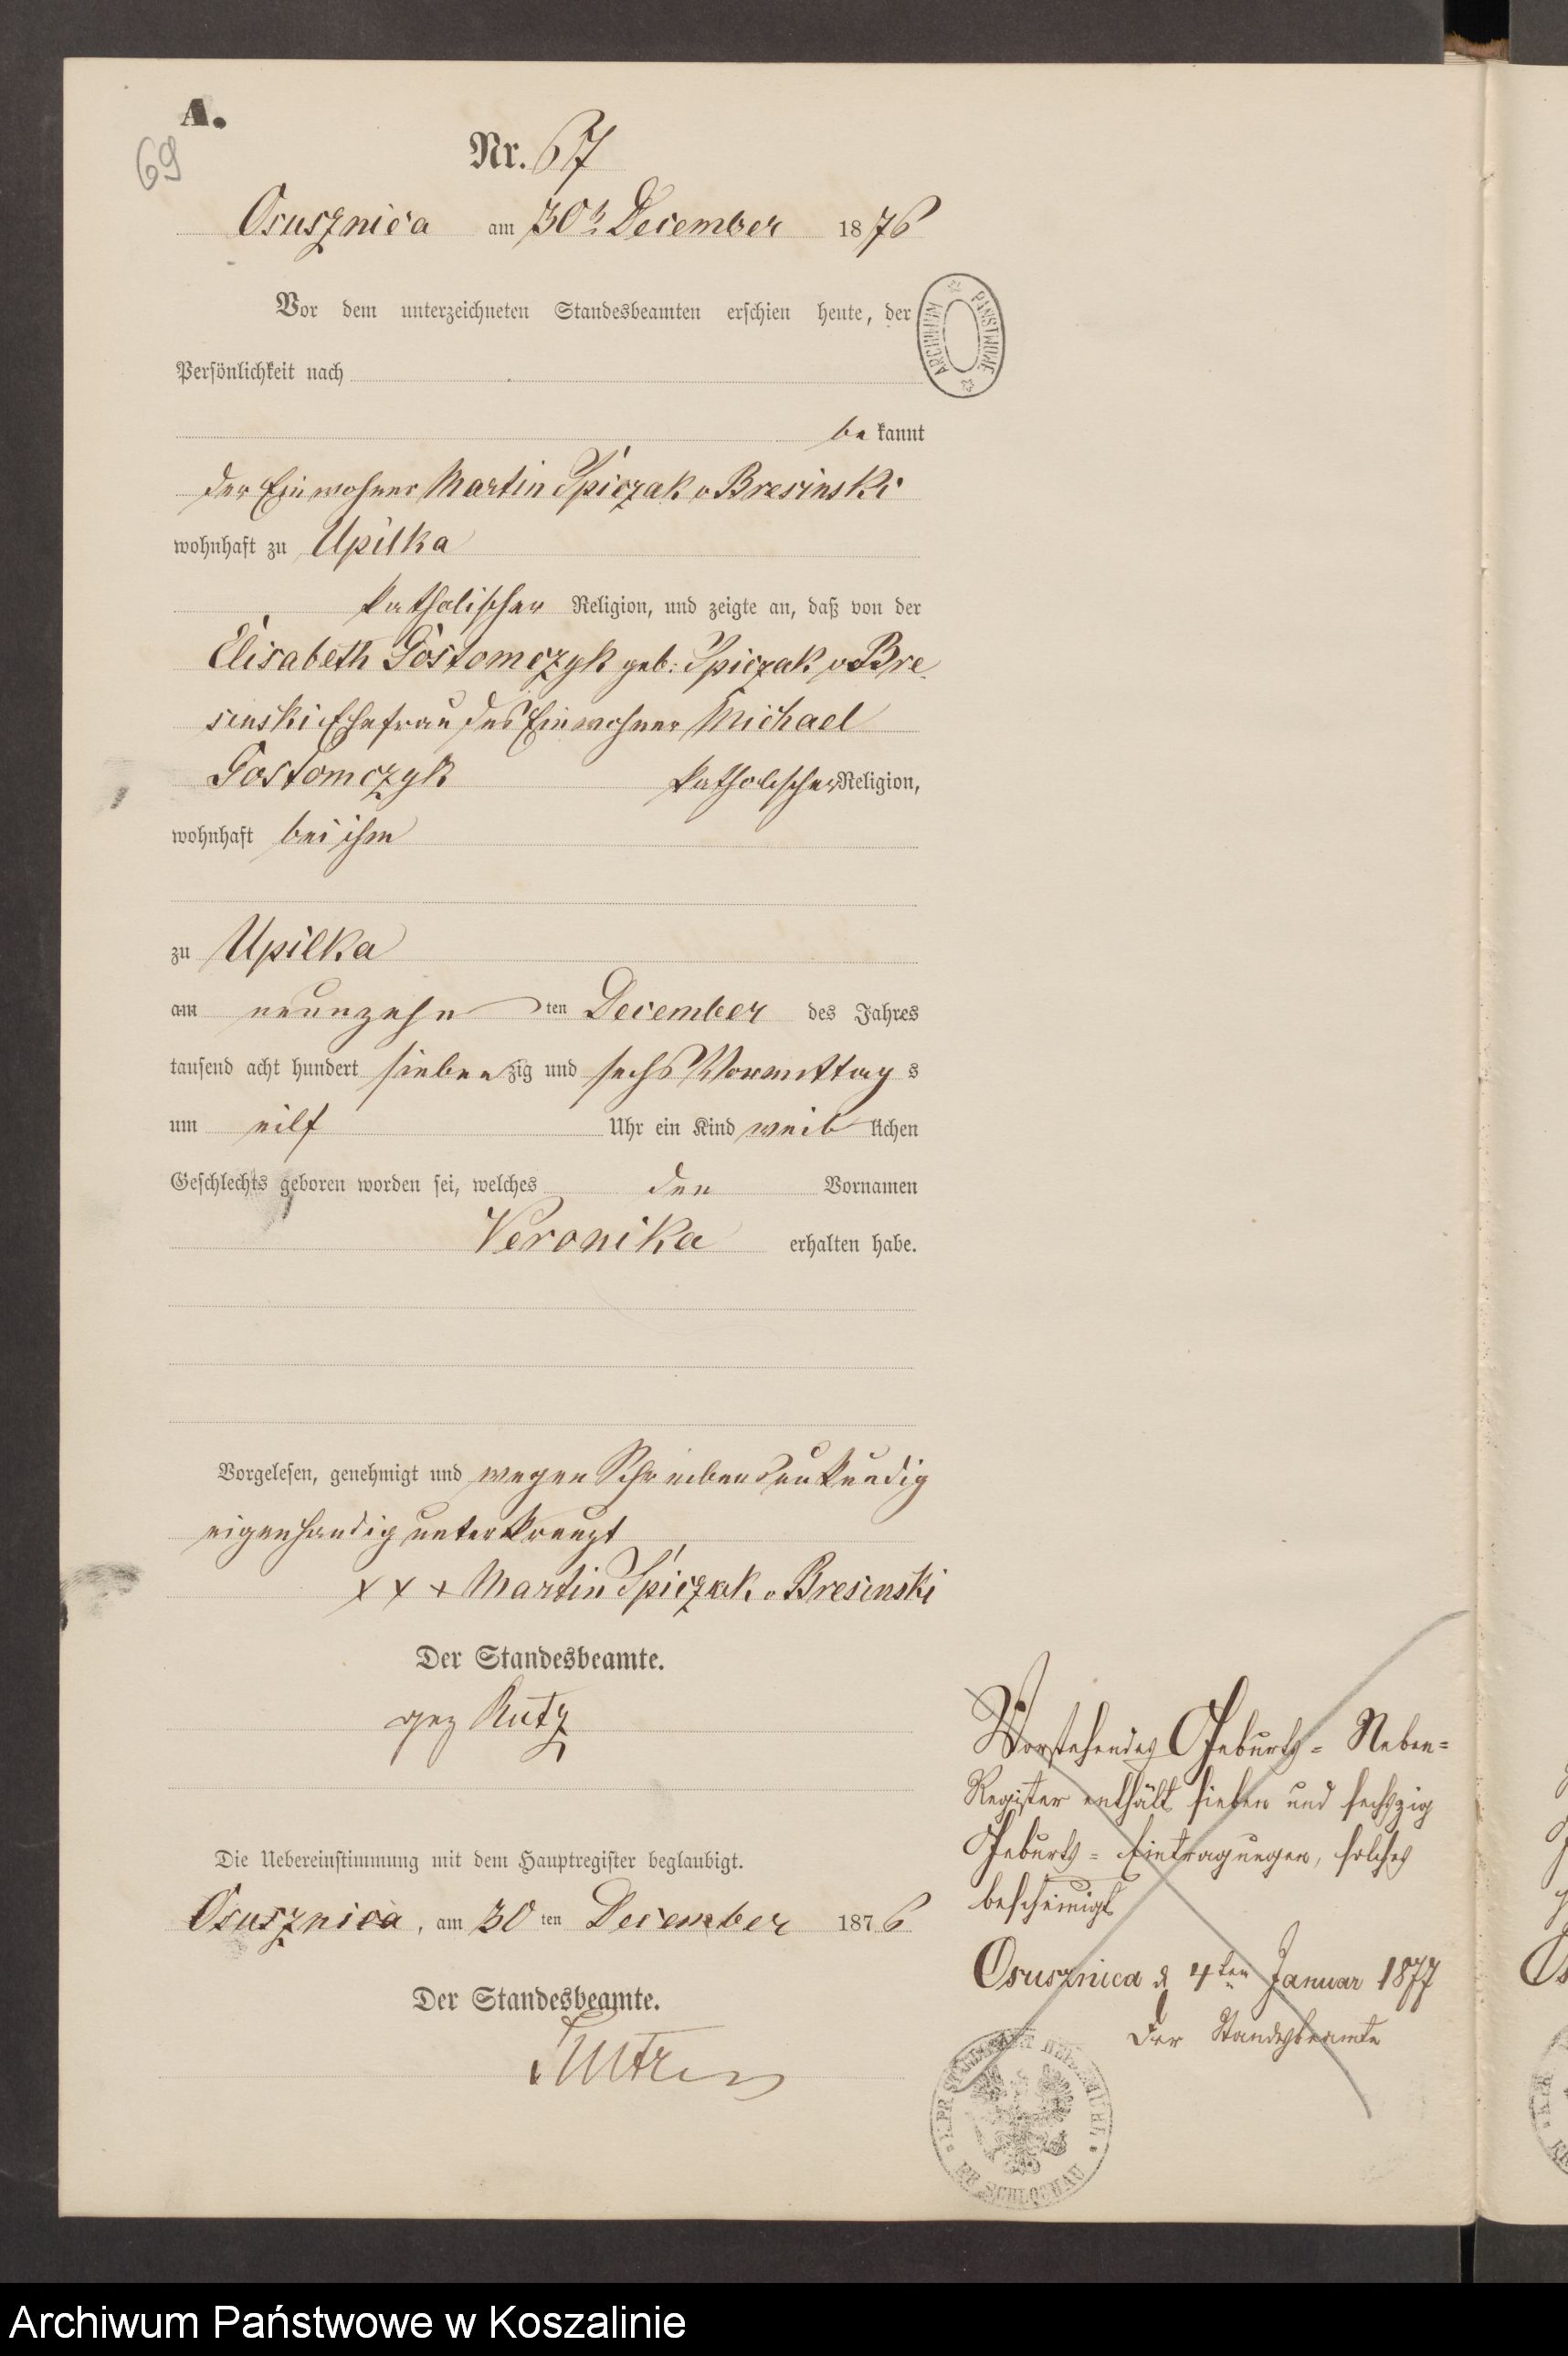 A.
69
Nr. 67
Osusznica am 30t December 1876
Vor dem unterzeichneten Standesbeamten erschien heute, der
Persönlichkeit nach
be kannt
der Einwohner Martin Spiczak v Bresinski
wohnhaft zu Upilka
katholischer Religion, und zeigte an, daß von der
Elisabeth Gostomczyk geb: Spiczak v Bre
sinski Ehefrau des Einwohner Michael
Gostomczyk katholischer Religion,
wohnhaft bei ihm
zu Upilka
am neunzehn ten December des Jahres
tausend acht hundert sieben zig und sechs Vormittag s
um eilf Uhr ein Kind weib lichen
Geschlechts geboren worden sei, welches den Vornamen
Veronika erhalten habe.
Vorgelesen, genehmigt und wegen Schreibensunkundig
eigenhandig unterkreuzt
x x x Martin Spiczak v Bresinski
Der Standesbeamte.
gez Rutz
Die Uebereinstimmung mit dem Hauptregister beglaubigt.
Osusznica, am 30 ten December 1876
Der Standesbeamte.
Vorstehendes Geburts=Neben=
Register enthält sieben und sechszig
Geburts=Eintragungen, solches
bescheinigt
Osusznica d 4ten Januar 1877
Der Standesbeamte
ARCHIWUM PAŃSTWOWE
K. PR. STANDESAMT HEIDEMÜHL
KR. SCHLOCHAU
Archiwum Państwowe w Koszalinie